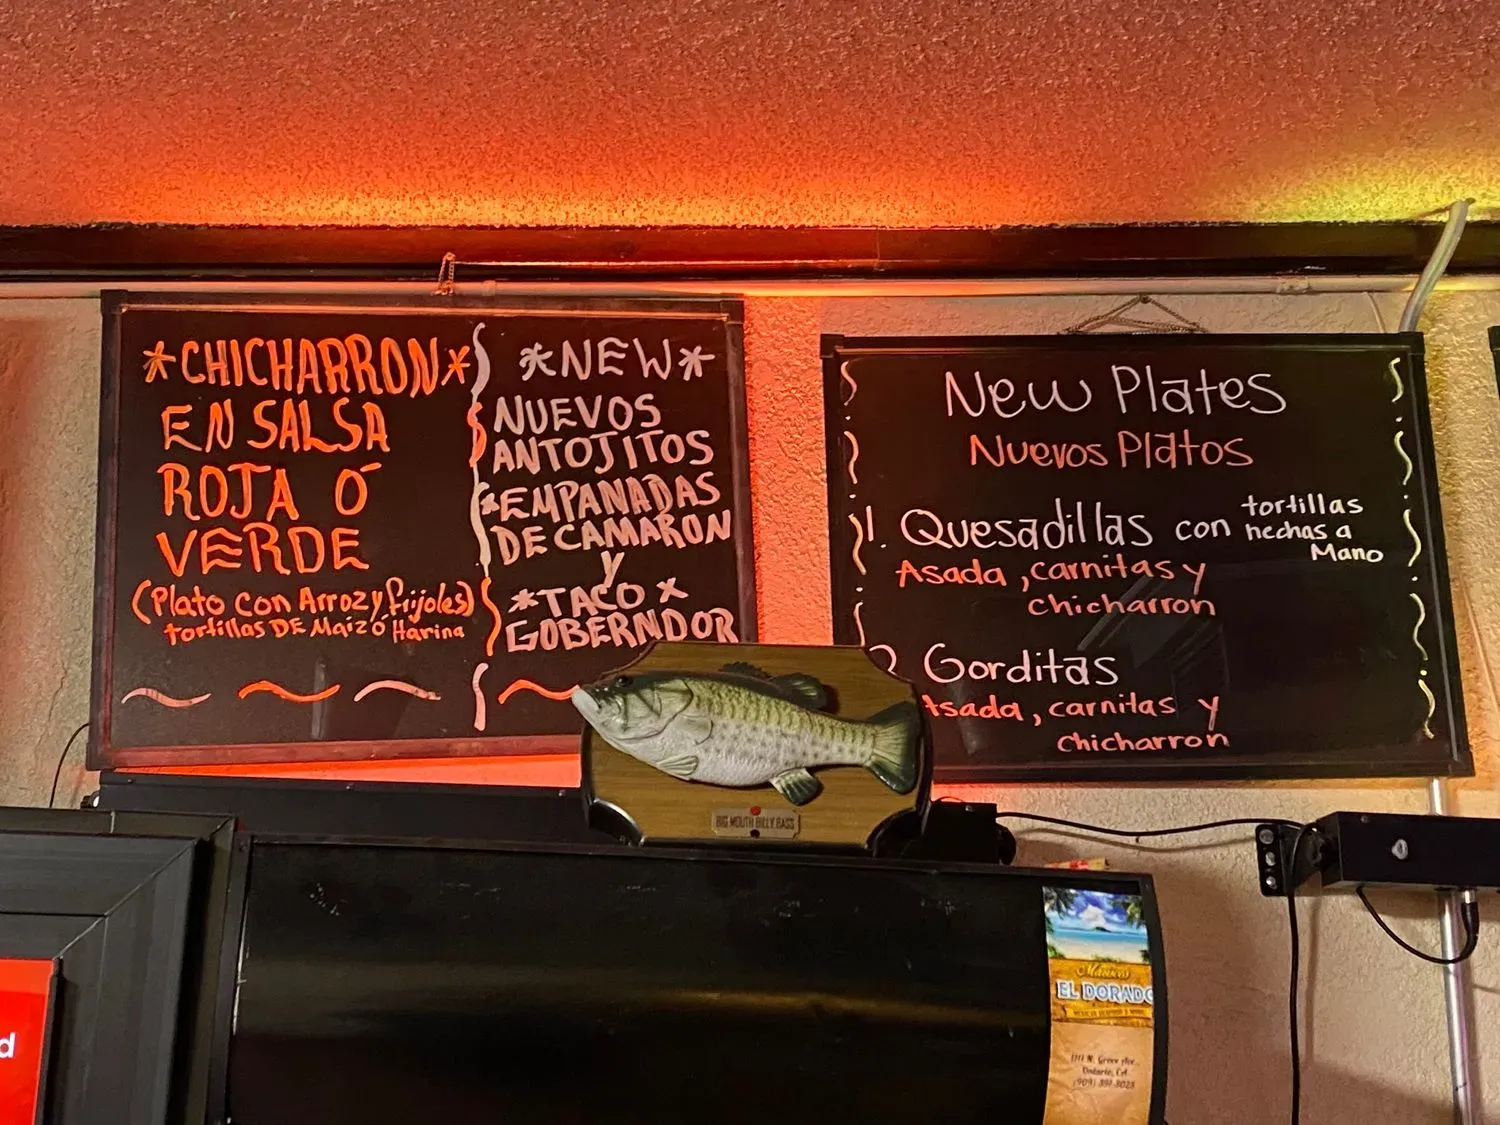 *CHICHARRON*
EN SALSA
ROJA Ó
VERDE
(Plato con Arroz y frijoles)
tortillas DE Maiz ó Harina
*NEW*
NUEVOS
ANTOJITOS
*EMPANADAS
DE CAMARON
y
*TACO*
GOBERNDOR
New Plates
Nuevos Platos
1. Quesadillas con tortillas
hechas a
Mano
Asada, carnitas y
chicharron
2 Gorditas
Asada, carnitas y
chicharron
BIG MOUTH BILLY BASS
Mariscos
EL DORADO
MEXICAN SEAFOOD & MORE
1111 N. Grove Ave.
Ontario, CA
(909) 391-3025
d